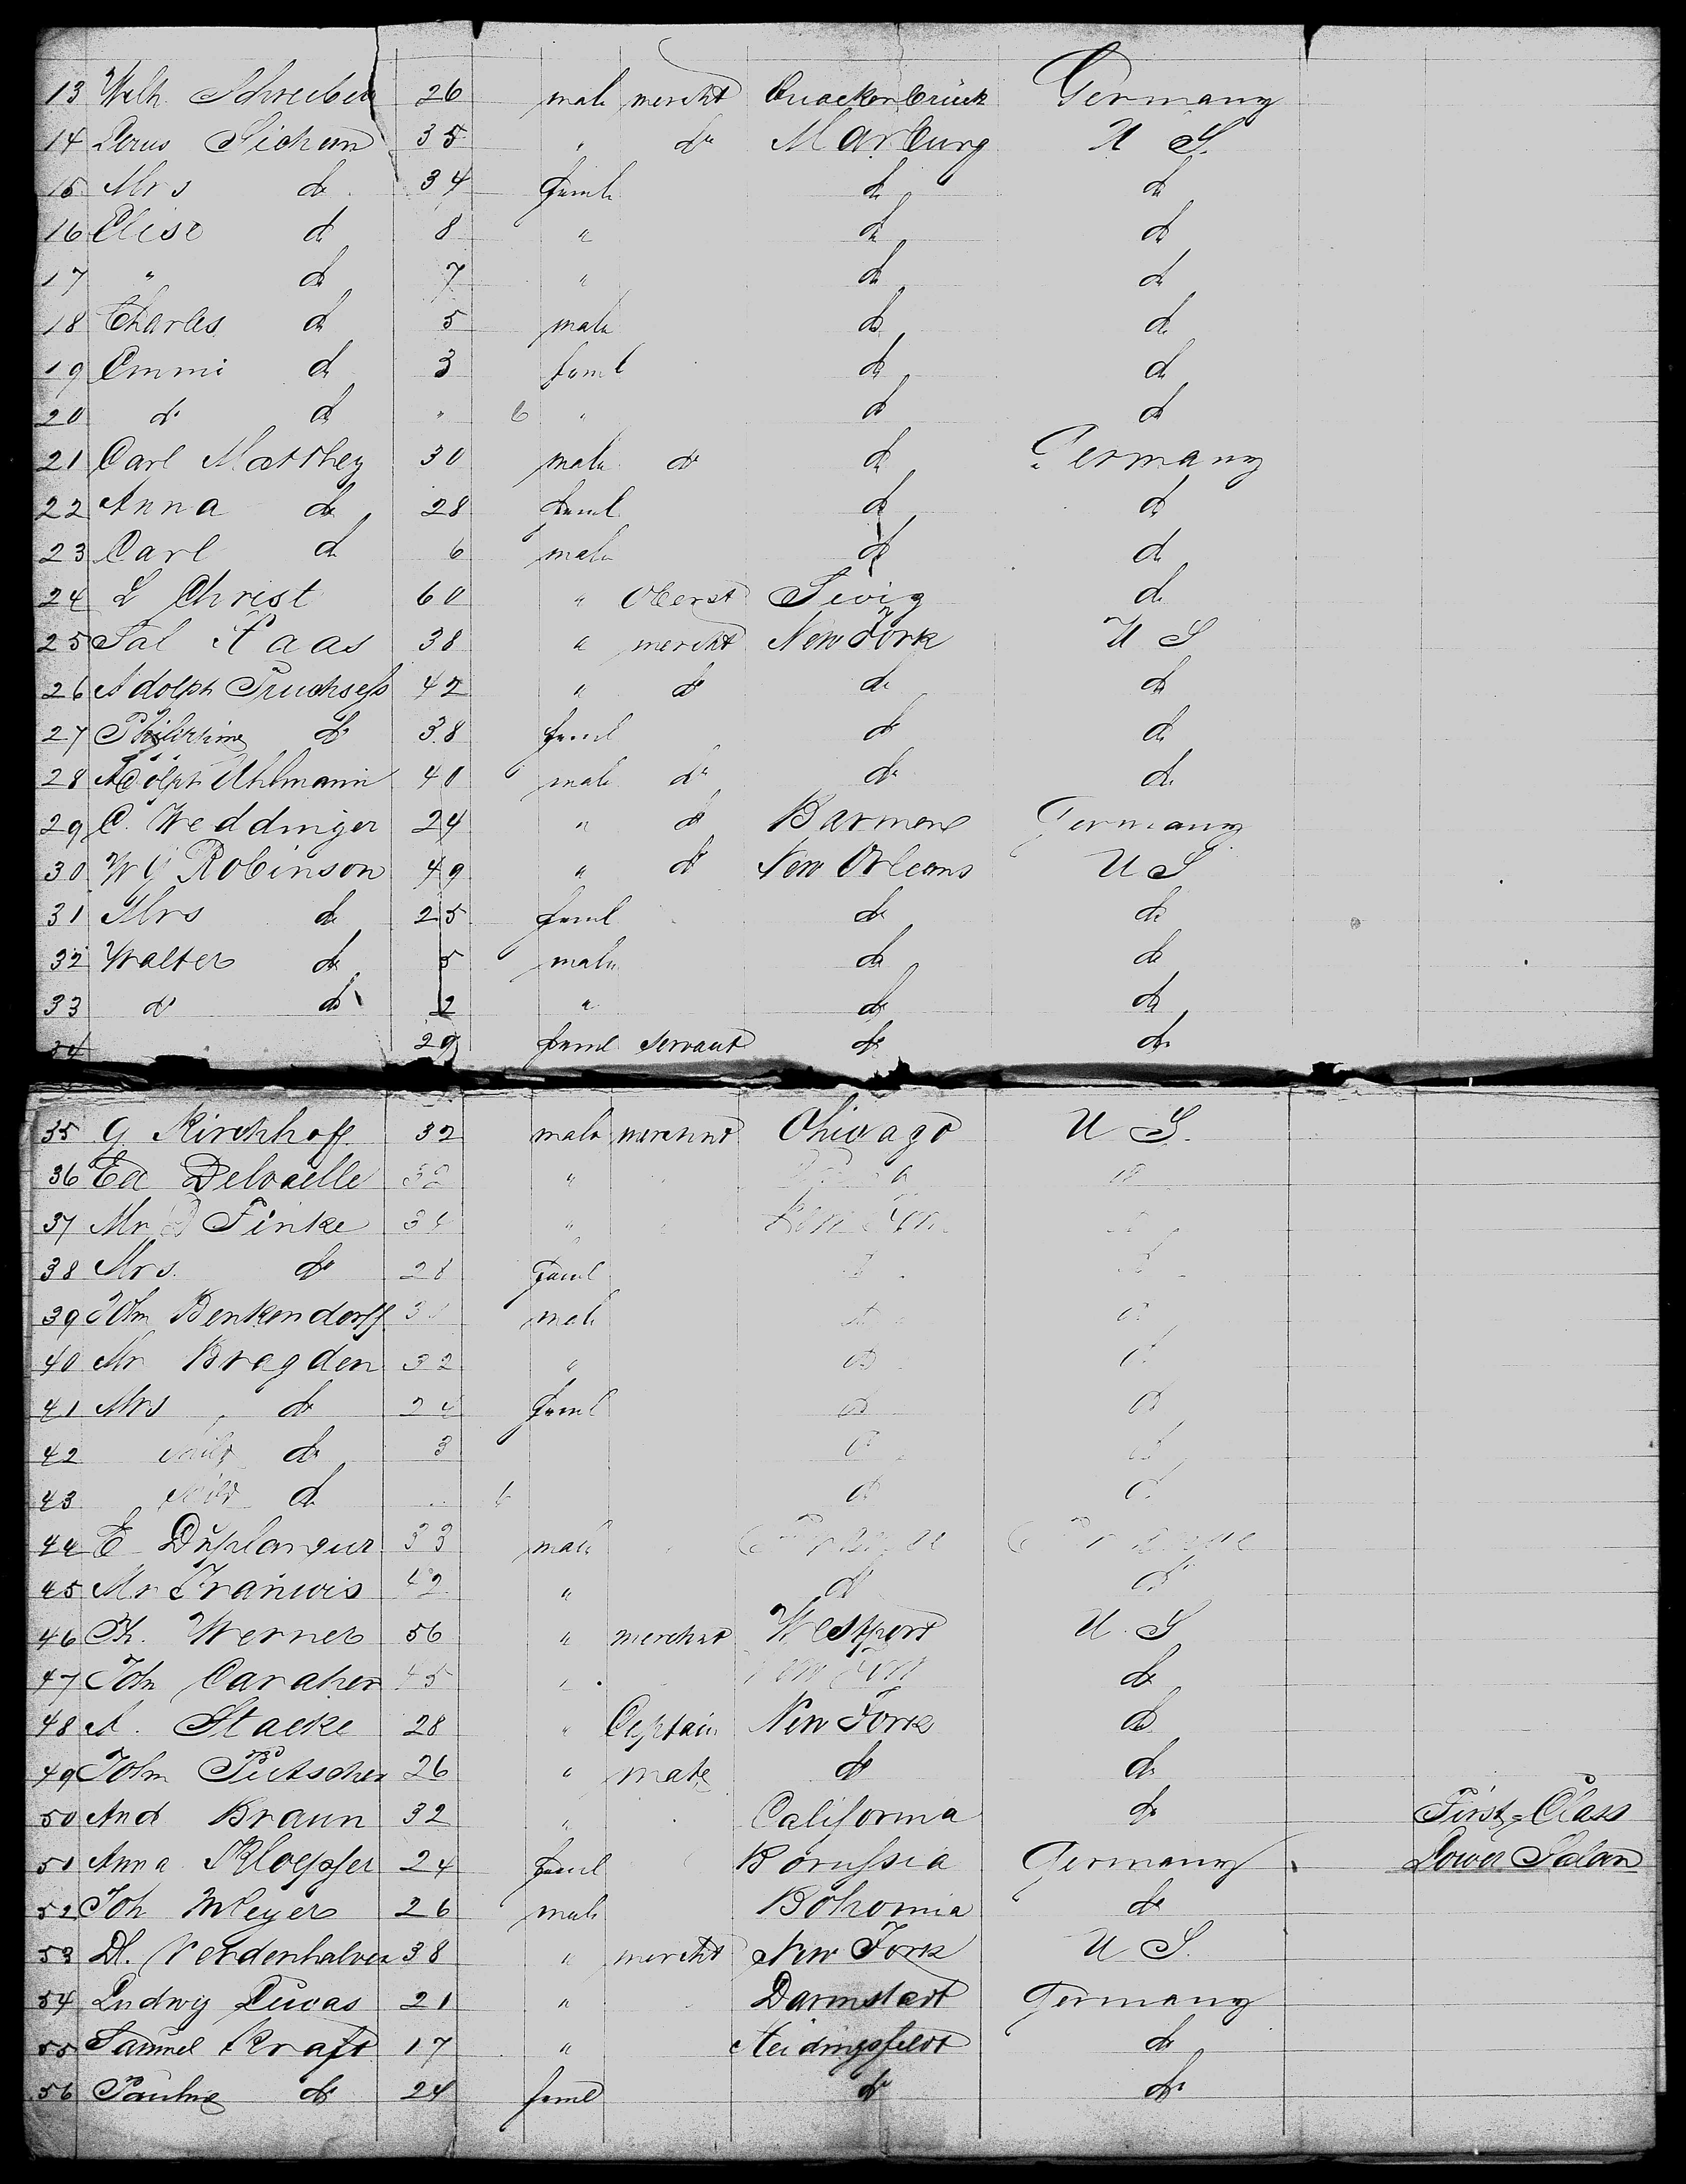 13 Wilh. Schreiber 26 male mercht Quackenbrück Germany
14 Sichem 35 " do Marburg U S.
15 Mrs do 34 feml do do
16 Elise do 8 " do do
17 " do 7 " do do
18 Charles do 5 male do do
19 Emmi do 3 feml do do
20 do do " 6 " do do
21 Carl Matthey 30 male do do Germany
22 Anna do 28 feml do do
23 Carl do 6 male do do
24 L Christ 60 " Oberst do
25 Sal Haas 38 " mercht New York U S
26 Adolph Truchsess 42 " do do do
27 Philippine do 38 feml do do
28 Adolph Uhlmann 40 male do do do
29 C. Weddinger 24 " do Barmen Germany
30 W G Robinson 49 " do New Orleans U S
31 Mrs do 25 feml do do
32 Walter do 5 male do do
33 do do 2 " do do
34 29 feml servant do do
35 G Kirchhoff 32 male merchnt Chicago U S.
36 Ed Delvaelle 32 "
37 Mr Finke "
38 Mrs. do 28 feml
39 John Benkendorff male
40 Mr Bragden 32 " do
41 Mrs do feml do do
42 child do 3
43 child do do
44 E Duplanque 33 male
45 Mr Francois 42 " do
46 Th. Werner 56 " merchnt Westport U. S
47 Joh Caraher " do
48 A. Stacke 28 " Captain New York do
49 John Pütscher 26 " mate do do
50 And Braun 32 " California do First Class
51 Anna Kloepfer 24 feml Borussia Germany Lower Saloon
52 Joh Meyer 26 male Bohemia do
53 38 " mercht New York U S.
54 Ludwig Lucas 21 " Darmstadt Germany
55 Samuel Kraft 17 " Heidingsfeldt do
56 Pauline do 24 feml do do